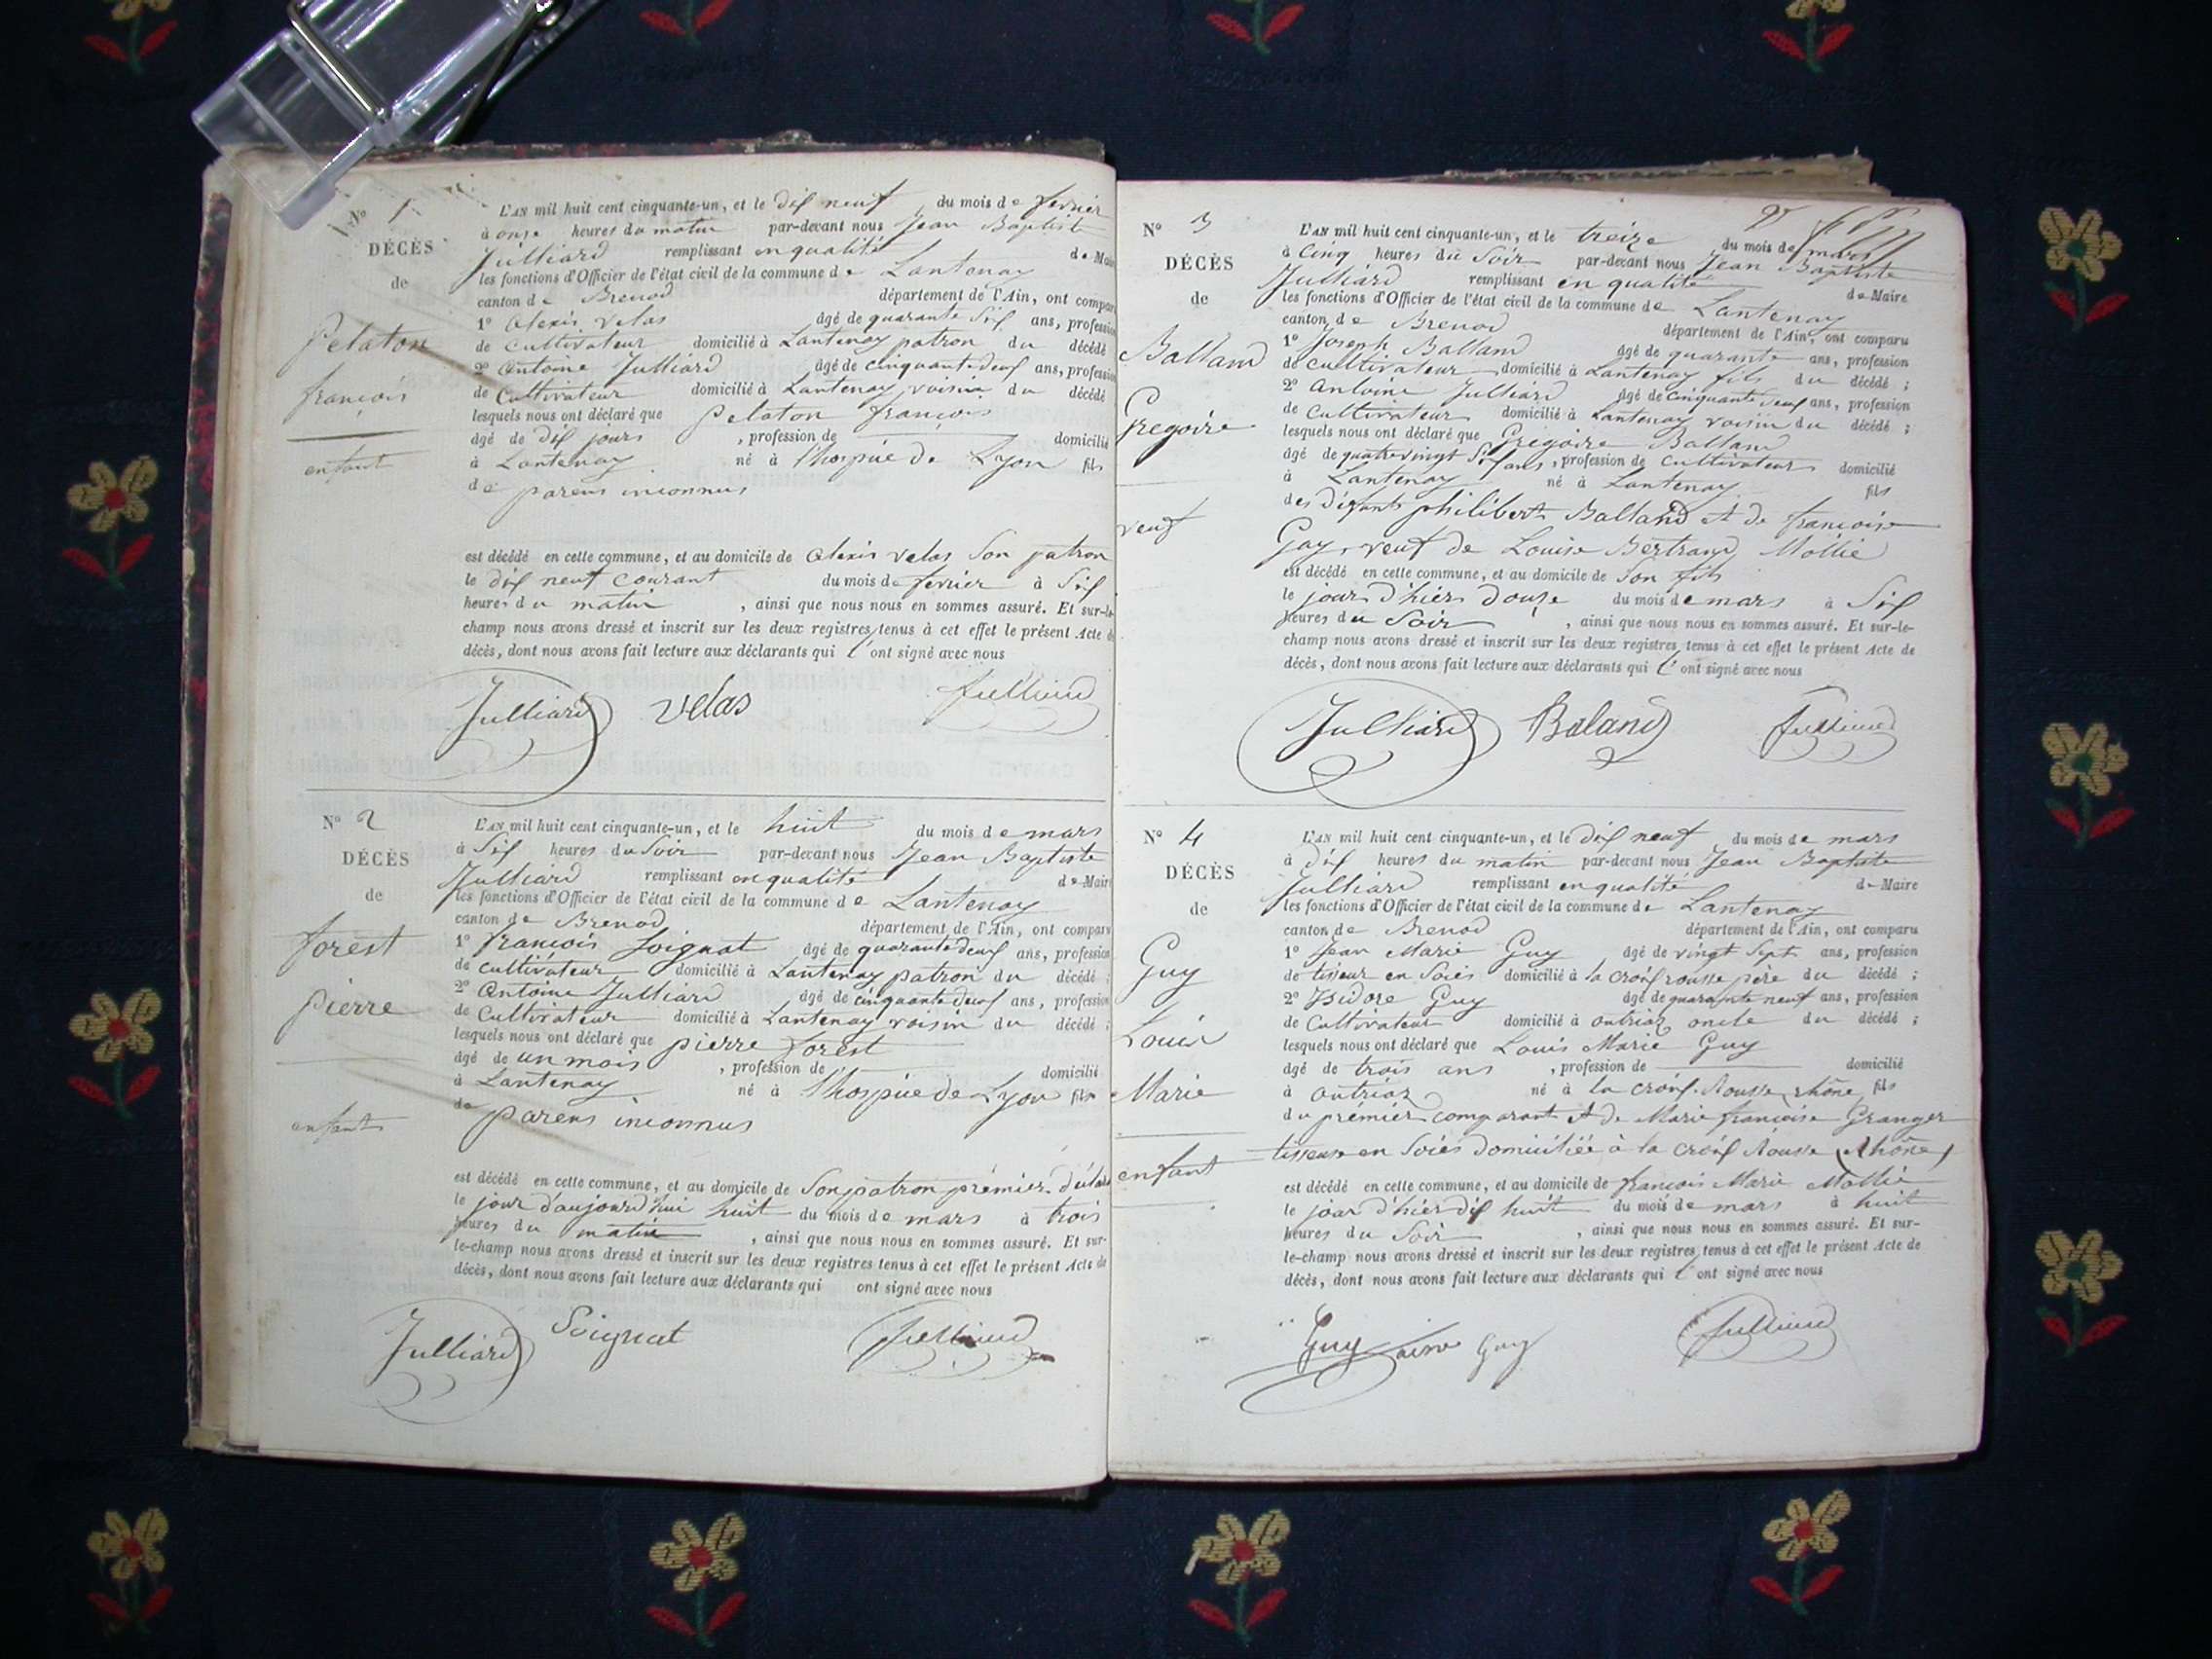 No 1
DÉCÈS
de
Pelaton
françois
enfant
L'AN mil huit cent cinquante-un, et le dix neuf du mois de fevrier
à onze heures du matin par-devant nous Jean Baptiste
Julliard remplissant en qualité de Maire
les fonctions d'Officier de l'état civil de la commune de Lantenay
canton de Brenod département de l'Ain, ont comparu
1o Alexis Velas âgé de quarante six ans, profession
de cultivateur domicilié à Lantenay patron du décédé
2o Antoine Julliard âgé de cinquante deux ans, profession
de Cultivateur domicilié à Lantenay voisin du décédé
lesquels nous ont déclaré que Pelaton françois
âgé de dix jours, profession de domicilié
à Lantenay né à l'hospice de Lyon fils
de parens inconnus
est décédé en cette commune, et au domicile de Alexis Velas Son patron
le dix neuf courant du mois de fevrier à Six
heures du matin, ainsi que nous nous en sommes assuré. Et sur-le-
champ nous avons dressé et inscrit sur les deux registres tenus à cet effet le présent Acte de
décès, dont nous avons fait lecture aux déclarants qui l'ont signé avec nous
Julliard Velas Julliard
No 2
DÉCÈS
de
forest
pierre
enfant
L'AN mil huit cent cinquante-un, et le huit du mois de mars
à Six heures du Soir par-devant nous Jean Baptiste
Julliard remplissant en qualité de Maire
les fonctions d'Officier de l'état civil de la commune de Lantenay
canton de Brenod département de l'Ain, ont comparu
1o françois Soignat âgé de quarante deux ans, profession
de cultivateur domicilié à Lantenay patron du décédé ;
2o Antoine Julliard âgé de cinquante deux ans, profession
de Cultivateur domicilié à Lantenay voisin du décédé ;
lesquels nous ont déclaré que pierre forest
âgé de un mois, profession de domicilié
à Lantenay né à l'hospice de Lyon fils
de parens inconnus
est décédé en cette commune, et au domicile de Son patron prémier
le jour d'aujourd'hui huit du mois de mars à trois
heures du matin, ainsi que nous nous en sommes assuré. Et sur-
le-champ nous avons dressé et inscrit sur les deux registres tenus à cet effet le présent Acte de
décès, dont nous avons fait lecture aux déclarants qui ont signé avec nous
Julliard Soignat Julliard
No 3
DÉCÈS
de
Balland
Gregoire
veuf
L'AN mil huit cent cinquante-un, et le treize du mois de mars
à Cinq heures du Soir par-devant nous Jean Baptiste
Julliard remplissant en qualité de Maire
les fonctions d'Officier de l'état civil de la commune de Lantenay
canton de Brenod département de l'Ain, ont comparu
1o Joseph Balland âgé de quarante ans, profession
de cultivateur domicilié à Lantenay fils du décédé ;
2o Antoine Julliard âgé de cinquante deux ans, profession
de Cultivateur domicilié à Lantenay voisin du décédé ;
lesquels nous ont déclaré que Gregoire Balland
âgé de quatre vingt Six ans, profession de Cultivateur domicilié
à Lantenay né à Lantenay fils
des défunts philibert Balland et de francoise
Gay, veuf de Louise Bertrand Mollie
est décédé en cette commune, et au domicile de Son fils
le jour d'hier douze du mois de mars à Six
heures du Soir, ainsi que nous nous en sommes assuré. Et sur-le-
champ nous avons dressé et inscrit sur les deux registres tenus à cet effet le présent Acte de
décès, dont nous avons fait lecture aux déclarants qui l'ont signé avec nous
Julliard Baland Julliard
No 4
DÉCÈS
de
Guy
Louis
Marie
enfant
L'AN mil huit cent cinquante-un, et le dix neuf du mois de mars
à dix heures du matin par-devant nous Jean Baptiste
Julliard remplissant en qualité de Maire
les fonctions d'Officier de l'état civil de la commune de Lantenay
canton de Brenod département de l'Ain, ont comparu
1o Jean Marie Guy âgé de vingt Sept ans, profession
de tisseur en Soies domicilié à la croix rousse père du décédé ;
2o Isidore Guy âgé de quarante neuf ans, profession
de Cultivateur domicilié à outriaz oncle du décédé ;
lesquels nous ont déclaré que Louis Marie Guy
âgé de trois ans, profession de domicilié
à outriaz né à la croix-Rousse, rhône, fils
du prémier comparant et de Marie françoise Granger
tisseuse en Soies domiciliée à la croix Rousse (Rhône)
est décédé en cette commune, et au domicile de francois Marie Mollie
le jour d'hier dix huit du mois de mars à huit
heures du Soir, ainsi que nous nous en sommes assuré. Et sur-
le-champ nous avons dressé et inscrit sur les deux registres tenus à cet effet le présent Acte de
décès, dont nous avons fait lecture aux déclarants qui l'ont signé avec nous
Guy Guy Julliard